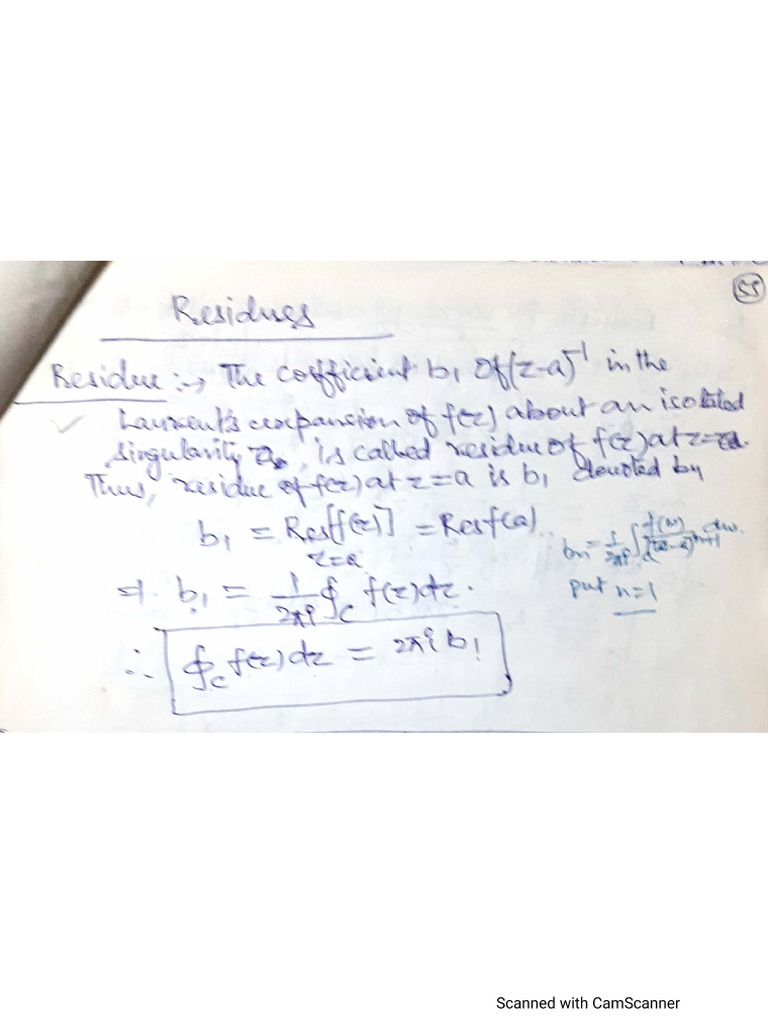 55
Residues
Residue :→ The coefficient b₁ of (z-a)⁻¹ in the
Laurent's expansion of f(z) about an isolated
singularity a, is called residue of f(z) at z=a.
Thus, residue of f(z) at z=a is b₁ denoted by
b₁ = Res[f(z)] = Resf(a)
z=a
⇒ b₁ = 1/2πi ∮c f(z)dz.
∴ ∮c f(z)dz = 2πi b₁
put n=1
Scanned with CamScanner